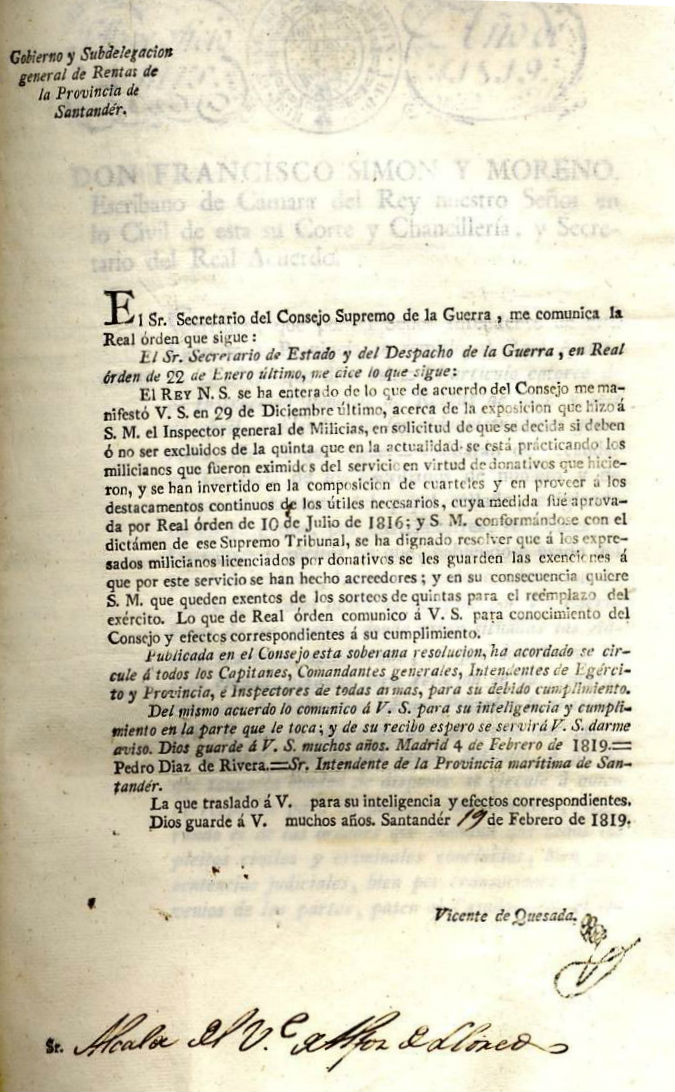 Gobierno y Subdelegacion
general de Rentas de
la Provincia de
Santandér.
Año de
1819
DON FRANCISCO SIMON Y MORENO,
Escribano de Camara del Rey nuestro Señor en
lo Civil de esta su Corte y Chancillería, y Secre-
tario del Real Acuerdo.
El Sr. Secretario del Consejo Supremo de la Guerra, me comunica la
Real órden que sigue:
El Sr. Secretario de Estado y del Despacho de la Guerra, en Real
órden de 22 de Enero último, me dice lo que sigue:
El REY N. S. se ha enterado de lo que de acuerdo del Consejo me ma-
nifestó V. S. en 29 de Diciembre último, acerca de la exposicion que hizo á
S. M. el Inspector general de Milicias, en solicitud de que se decida si deben
ó no ser excluidos de la quinta que en la actualidad se está prácticando los
milicianos que fueron eximidos del servicio en virtud de donativos que hicie-
ron, y se han invertido en la composicion de cuarteles y en proveer á los
destacamentos continuos de los útiles necesarios, cuya medida fué aprova-
da por Real órden de 10 de Julio de 1816; y S. M. conformándose con el
dictámen de ese Supremo Tribunal, se ha dignado resolver que á los expre-
sados milicianos licenciados por donativos se les guarden las exenciones á
que por este servicio se han hecho acreedores; y en su consecuencia quiere
S. M. que queden exentos de los sorteos de quintas para el reémplazo del
exército. Lo que de Real órden comunico á V. S. para conocimiento del
Consejo y efectos correspondientes á su cumplimiento.
Publicada en el Consejo esta soberana resolucion, ha acordado se cir-
cule á todos los Capitanes, Comandantes generales, Intendentes de Egérci-
to y Provincia, é Inspectores de todas armas, para su debido cumplimiento.
Del mismo acuerdo lo comunico á V. S. para su inteligencia y cumpli-
miento en la parte que le toca; y de su recibo espero se servirá V. S. darme
aviso. Dios guarde á V. S. muchos años. Madrid 4 de Febrero de 1819.=
Pedro Diaz de Rivera.=Sr. Intendente de la Provincia marítima de San-
tandér.
La que traslado á V. para su inteligencia y efectos correspondientes.
Dios guarde á V. muchos años. Santandér 19 de Febrero de 1819.
pleitos civiles y criminales
sentencias judiciales, bien por
Vicente de Quesada.
Sr. Alcalde del V.e de Alfoz de Lloredo